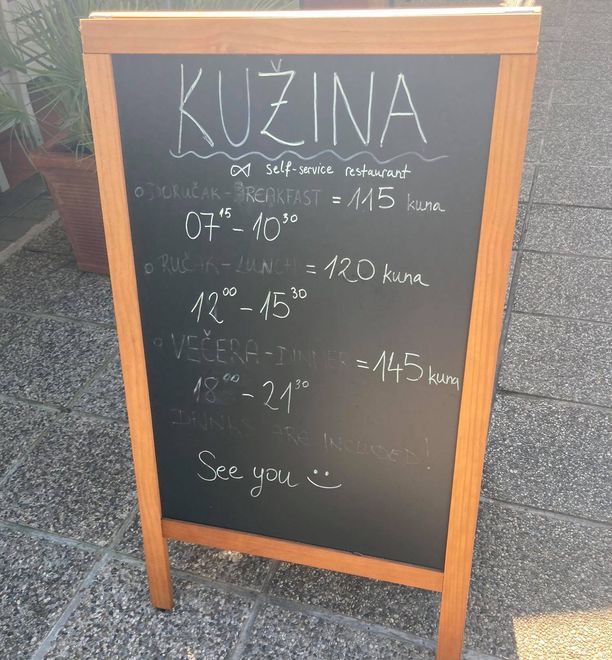 KUŽINA
self-service restaurant
DORUČAK-BREAKFAST = 115 kuna
07¹⁵ - 10³⁰
RUČAK-LUNCH = 120 kuna
12⁰⁰ - 15³⁰
VEČERA-DINNER = 145 kuna
18⁰⁰ - 21³⁰
DRINKS ARE INCLUDED!
See you